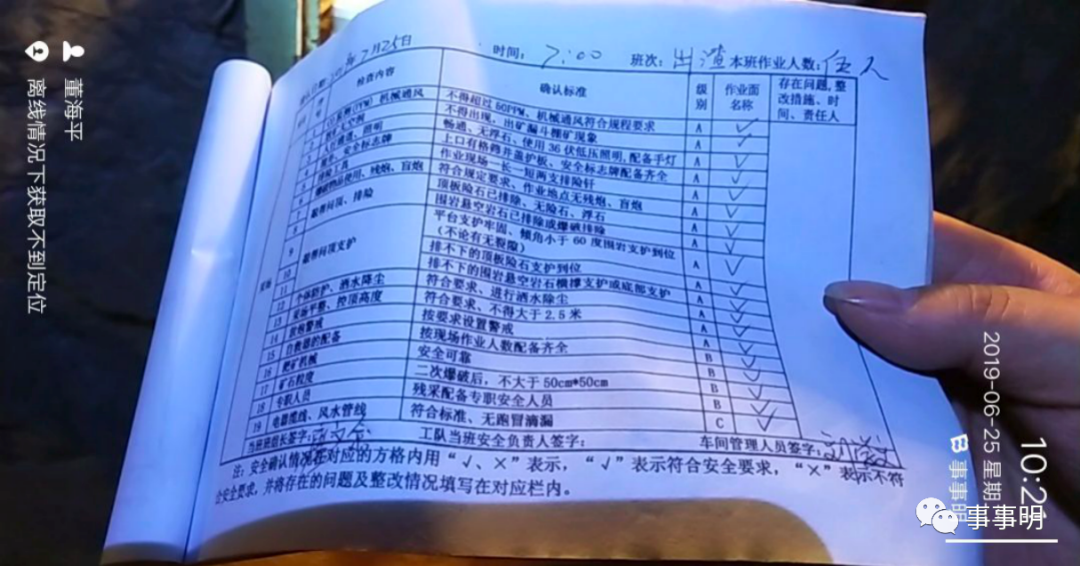 7月25日 时间：7:00 班次：出渣 本班作业人数：伍人
检查内容 确认标准 级别 作业面名称 存在问题，整改措施、时间、责任人
(PPM)、机械通风 不得超过50PPM、机械通风符合规程要求 A ✓
不得出现，出矿漏斗棚矿现象 A ✓
照明 畅通、无浮石、使用36伏低压照明，配备手灯 A ✓
安全标志牌 上口有格筛井盖护板、安全标志牌配备齐全 A ✓
工具 作业现场一长一短两支撬险钎 A ✓
使用、残炮、盲炮 符合规定要求、作业地点无残炮、盲炮 A ✓
顶板险石已排除、无险石、浮石
排险 围岩悬空岩石已排除或爆破排除
9 顶支护 平台支护牢固、倾角小于60度围岩支护到位
(不论有无裂隙)
10 排不下的顶板险石支护到位
11 排不下的围岩悬空岩石横撑支护或底部支护
12 个体防护、洒水降尘 符合要求、进行洒水除尘
13 采场平整、控顶高度 符合要求、不得大于2.5米
14 警戒 按要求设置警戒
15 自救器的配备 按现场作业人数配备齐全 B ✓
16 机械 安全可靠 B ✓
17 矿石粒度 二次爆破后，不大于50cm*50cm B ✓
18 专职人员 残采配备专职安全人员 B ✓
19 电器缆线、风水管线 符合标准、无跑冒滴漏 C ✓
当班班组长签字： 工队当班安全负责人签字： 车间管理人员签字：
注：安全确认情况在对应的方格内用“√、×”表示，“√”表示符合安全要求，“×”表示不符
合安全要求，并将存在的问题及整改情况填写在对应栏内。
董海平
离线情况下获取不到定位
10:21
2019-06-25 星期
事事明
事事明